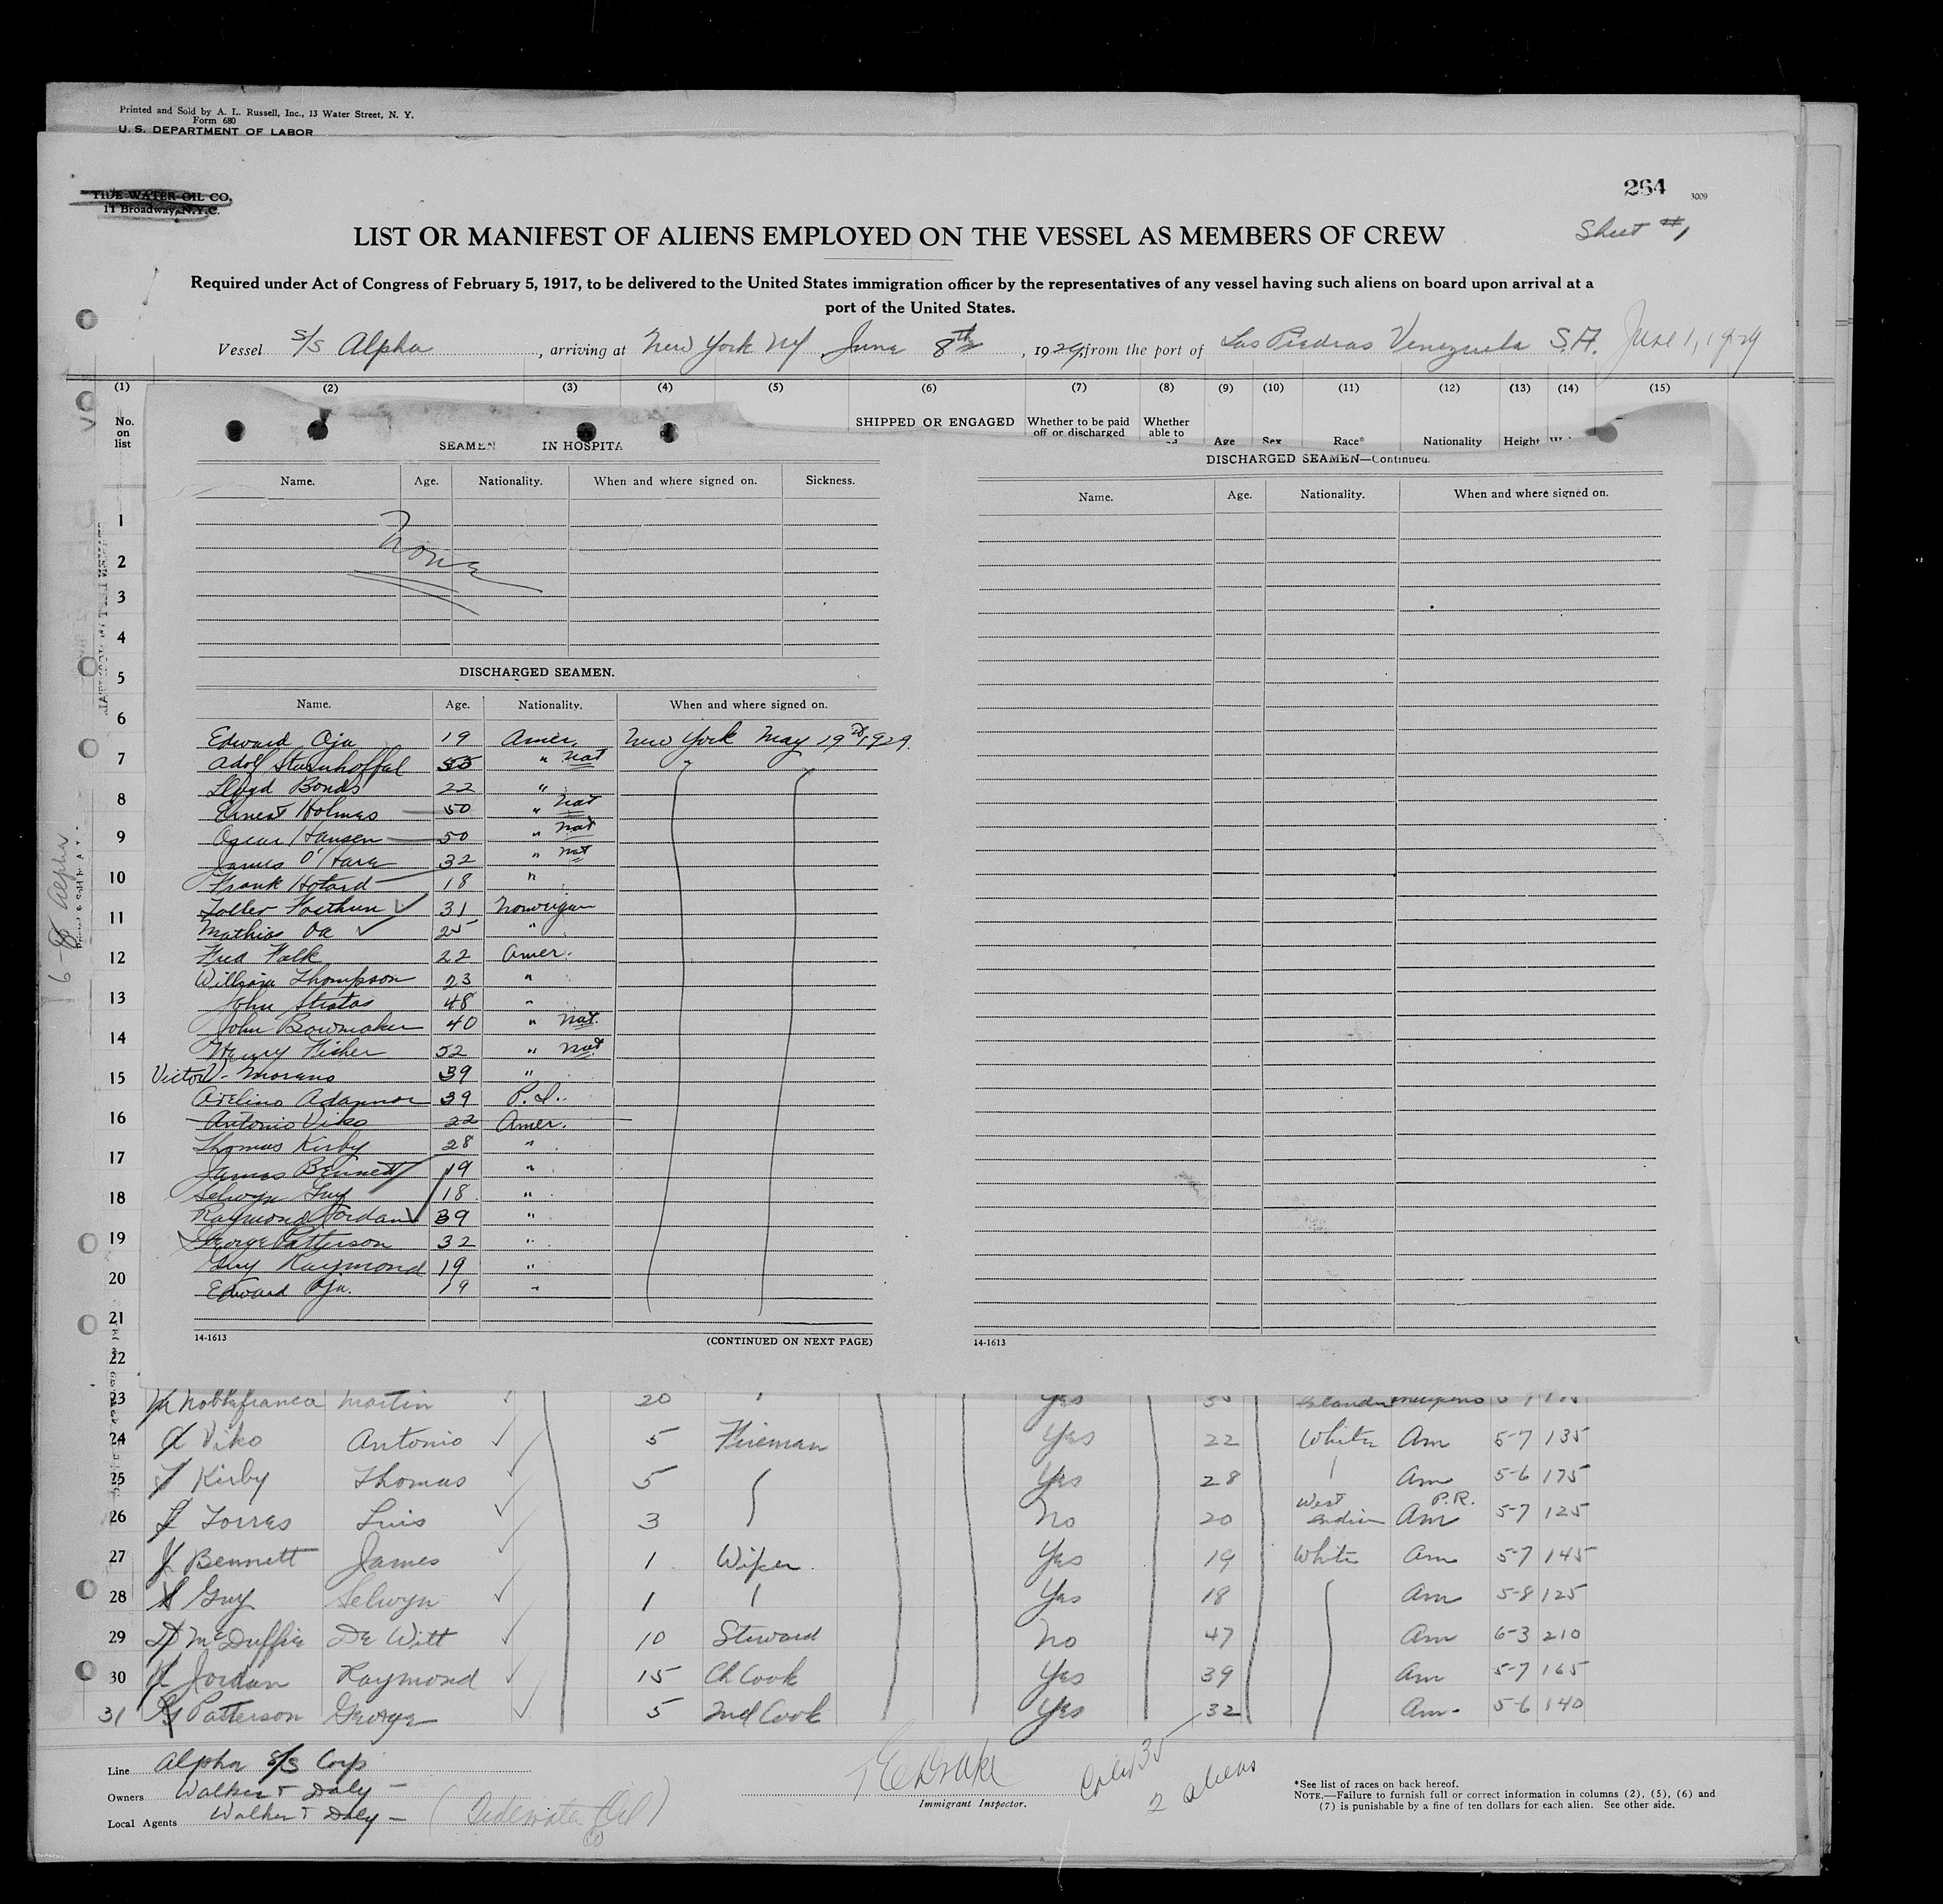 Printed and Sold by A. L. Russell, Inc., 13 Water Street, N. Y.
Form 680
U. S. DEPARTMENT OF LABOR
TIDE WATER OIL CO.
11 Broadway, N.Y.C.
264
3009
Sheet #1
LIST OR MANIFEST OF ALIENS EMPLOYED ON THE VESSEL AS MEMBERS OF CREW
Required under Act of Congress of February 5, 1917, to be delivered to the United States immigration officer by the representatives of any vessel having such aliens on board upon arrival at a
port of the United States.
Vessel S/S Alpha, arriving at New York NY June 8th, 1929, from the port of Las Piedras Venezuela S.A. June 1, 1929
(1) (2) (3) (4) (5) (6) (7) (8) (9) (10) (11) (12) (13) (14) (15)
No. on list
SHIPPED OR ENGAGED
Whether to be paid off or discharged
Whether able to
Age Sex Race* Nationality Height
SEAMEN IN HOSPITA
Name. Age. Nationality. When and where signed on. Sickness.
None
DISCHARGED SEAMEN.
Name. Age. Nationality. When and where signed on.
Edward Oja 19 Amer. New York May 19th, 1929
Adolf 55 " nat "
Lloyd Bonds 22 "
Ernest Holmes 50 " nat
Oscar Hansen 50 " nat
James O'Hara 32 " nat
Frank Hotard 18 "
31 Norwegian
Mathias Oa 25 "
Fred Falk 22 Amer.
William Thompson 23 "
John Stratas 48 "
John Bowmaker 40 " nat.
Henry Fisher 52 " nat
Victor V. Morano 39 "
Avelino 39 P.I.
Antonio Viko 22 Amer.
Thomas Kirby 28 "
James Bennett 19 "
Selwyn Guy 18 "
Raymond Jordan 39 "
George Patterson 32 "
Guy Raymond 19 "
Edward Oja. 19 "
14-1613
(CONTINUED ON NEXT PAGE)
DISCHARGED SEAMEN—Continued.
Name. Age. Nationality. When and where signed on.
14-1613
1
2
3
4
5
6
7
8
9
10
11
12
13
14
15
16
17
18
19
20
21
22
6-8 Alpha
23 Martin 20 Yes
24 Viko Antonio 5 Fireman Yes 22 White Am 5-7 135
25 Kirby Thomas 5 Yes 28 Am 5-6 175
26 Torres Luis 3 No 20 West Indian Am P.R. 5-7 125
27 Bennett James 1 Wiper Yes 19 White Am 5-7 145
28 Guy Selwyn 1 Yes 18 Am 5-8 125
29 McDuffie De Witt 10 Steward No 47 Am 6-3 210
30 Jordan Raymond 15 Ch Cook Yes 39 Am 5-7 165
31 Patterson George 5 2nd Cook Yes 32 Am. 5-6 140
Line Alpha S/S Corp
Owners Walker & Daly
Local Agents Walker & Daly (Tidewater Oil Co)
Immigrant Inspector.
35
2 aliens
*See list of races on back hereof.
NOTE.—Failure to furnish full or correct information in columns (2), (5), (6) and
(7) is punishable by a fine of ten dollars for each alien. See other side.